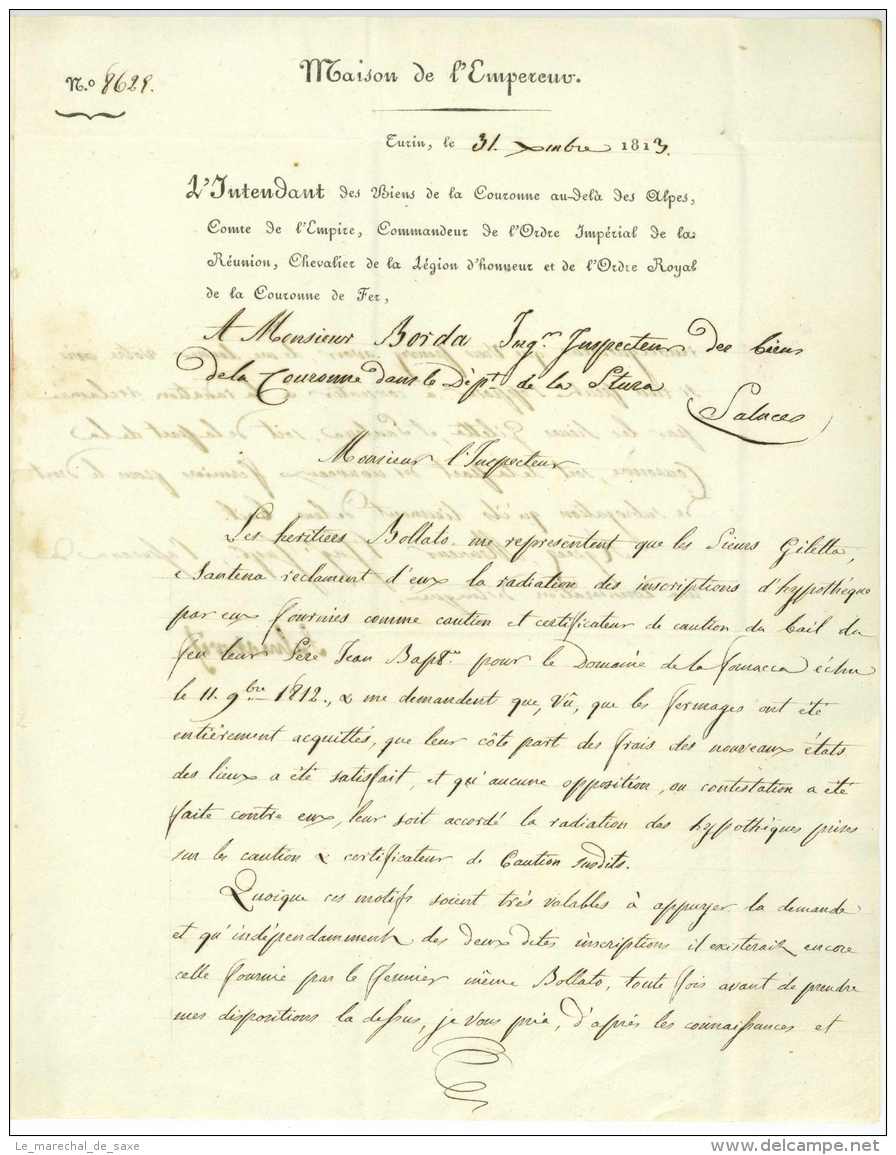 N.o 8629.
Maison de l'Empereur.
Turin, le 31. xmbre 1813.
L'Intendant des Biens de la Couronne au-delà des Alpes,
Comte de l'Empire, Commandeur de l'Ordre Impérial de la
Réunion, Chevalier de la Légion d'honneur et de l'Ordre Royal
de la Couronne de Fer,
A Monsieur Borda Ing.r Inspecteur des biens
de la Couronne dans le Dép.t de la Stura
Saluces
Monsieur l'Inspecteur
Les heritiers Bollato me representent que les Sieurs Giletta,
e Santena reclament d'eux la radiation des inscriptions d'hypothéque
par eux fournies comme caution et certificateur de caution du bail du
feu leur Pére Jean Bap.te pour le Domaine de la fornacca échu
le 11. 9bre 1812., & me demandent que, Vû, que les fermages ont été
entiérement acquittés, que leur côte part des frais des nouveaux états
des lieux a été satisfait, et qu'aucune opposition, ou contestation a été
faite contre eux, leur soit accordé la radiation des hypothéques prises
sur les caution & certificateur de Caution susdits.
Quoique ces motifs soient trés valables à appuyer la demande
et qu'indépendamment des deux dites inscriptions il existerait encore
celle fournie par le fermier même Bollato, toute fois avant de prendre
mes dispositions la dessus, je vous prie, d'aprés les connaissances et
Le_marechal_de_saxe
delcampe.net